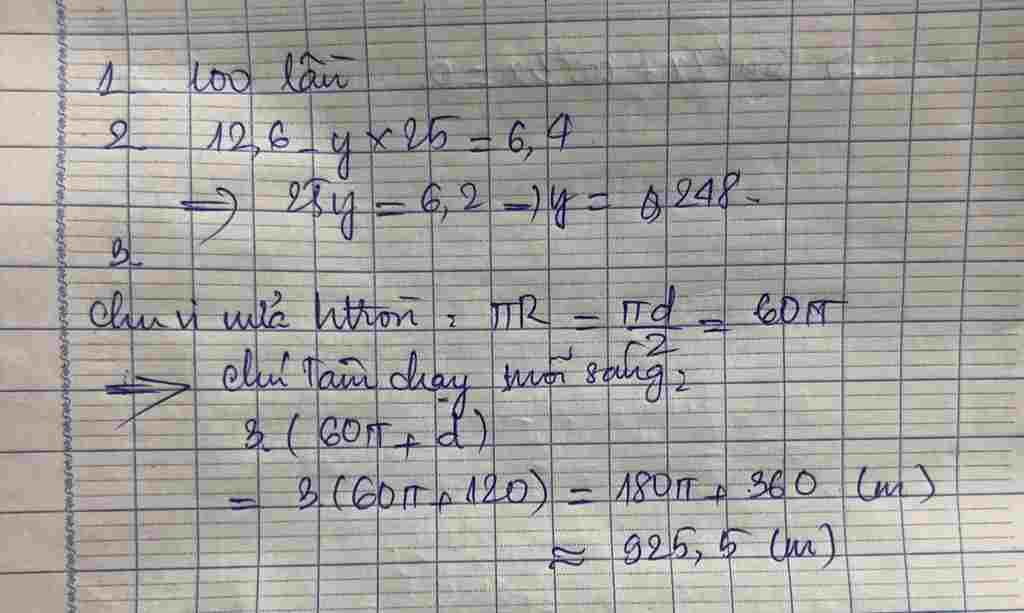 1 100 lần
2 12,6 - y × 25 = 6,4
=> 25y = 6,2 → y = 0,248.
3
Chu vi nửa htròn : πR = πd/2 = 60π
=> Chú Tâm chạy mỗi sáng :
3 (60π + d)
= 3 (60π + 120) = 180π + 360 (m)
≈ 925,5 (m)